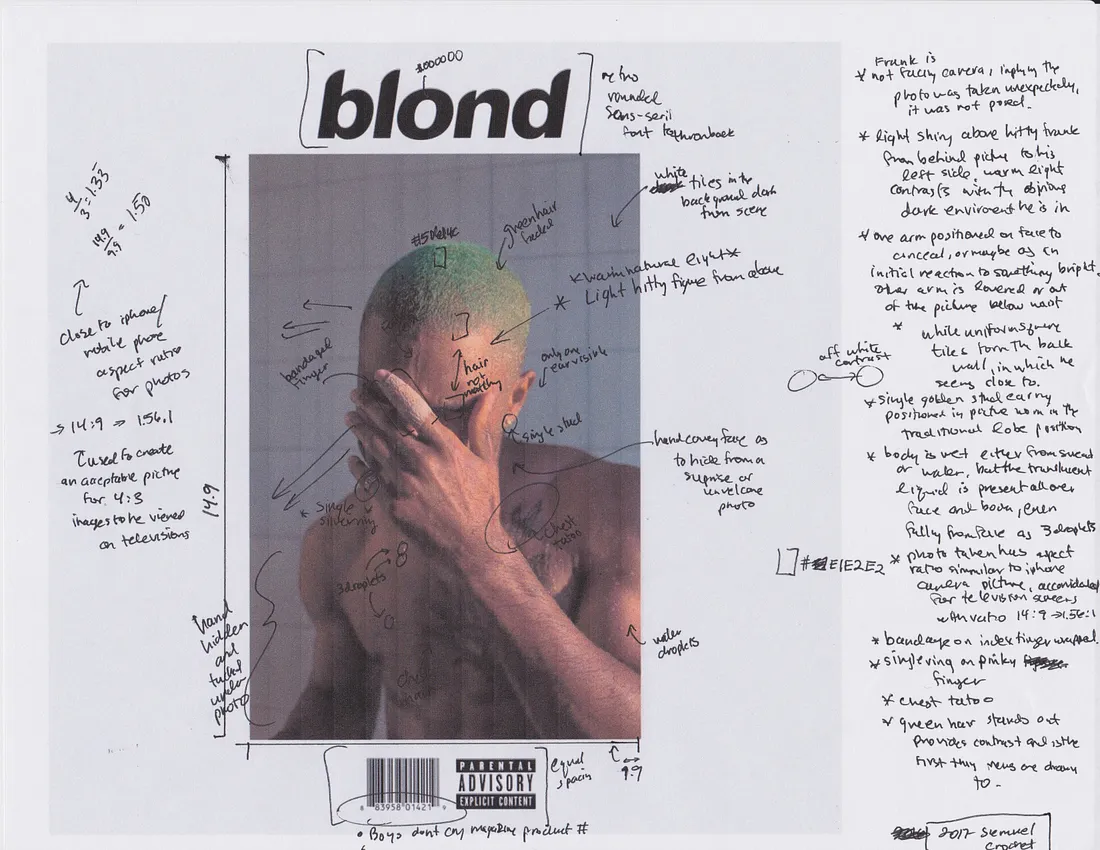 #000000
blond
retro
rounded
sans-serif
font to throwback
4/3 = 1.33
14.9/9.9 = 1.50
close to iphone/
mobile phone
aspect ratio
for photos
→ 14:9 → 1.56.1
used to create
an acceptable picture
for 4:3
images to be viewed
on televisions
14.9
hand
hidden
and
tucked
under
photo
white
tiles in the
background dark
from scene
green hair
faded
*warm natural light*
* Light hitting figure from above
bandaged
finger
hair
not
only one
ear visible
single stud
hand covering face as
to hide from a
suprise or
unvelcome
photo
* Single
silver ring
chest
tatoo
3 droplets
water
droplets
off white
contrast
#E1E2E2
equal
spacing
9.9
PARENTAL
ADVISORY
EXPLICIT CONTENT
6 83958 01421 9
• Boys dont cry magazine product #
Frank is
* not facing camera, implying the
photo was taken unexpectedly,
it was not posed.
* light shining above hitting frank
from behind picture to his
left side, warm light
contrasts with the obvious
dark enviroment he is in
* one arm positioned on face to
conceal, or maybe as an
initial reaction to something bright.
other arm is lowered or out
of the picture below waist
* white uniform square
tiles form the back
wall, in which he
seems close to.
* single golden stud earring
positioned in picture worn in the
traditional lobe position
* body is wet either from sweat
or water, but the translucent
liquid is present all over
face and body, even
falling from face as 3 droplets
* photo taken has aspect
ratio simmular to iphone
camera picture, accomidated
for television screens
with ratio 14:9 → 1.56:1
* bandage on index finger wrapped.
* single ring on pinky
finger
* chest tatoo
* green hair stands out
provides contrast and is the
first thing viewers are drawn
to.
2017 Siemuel
Crochet